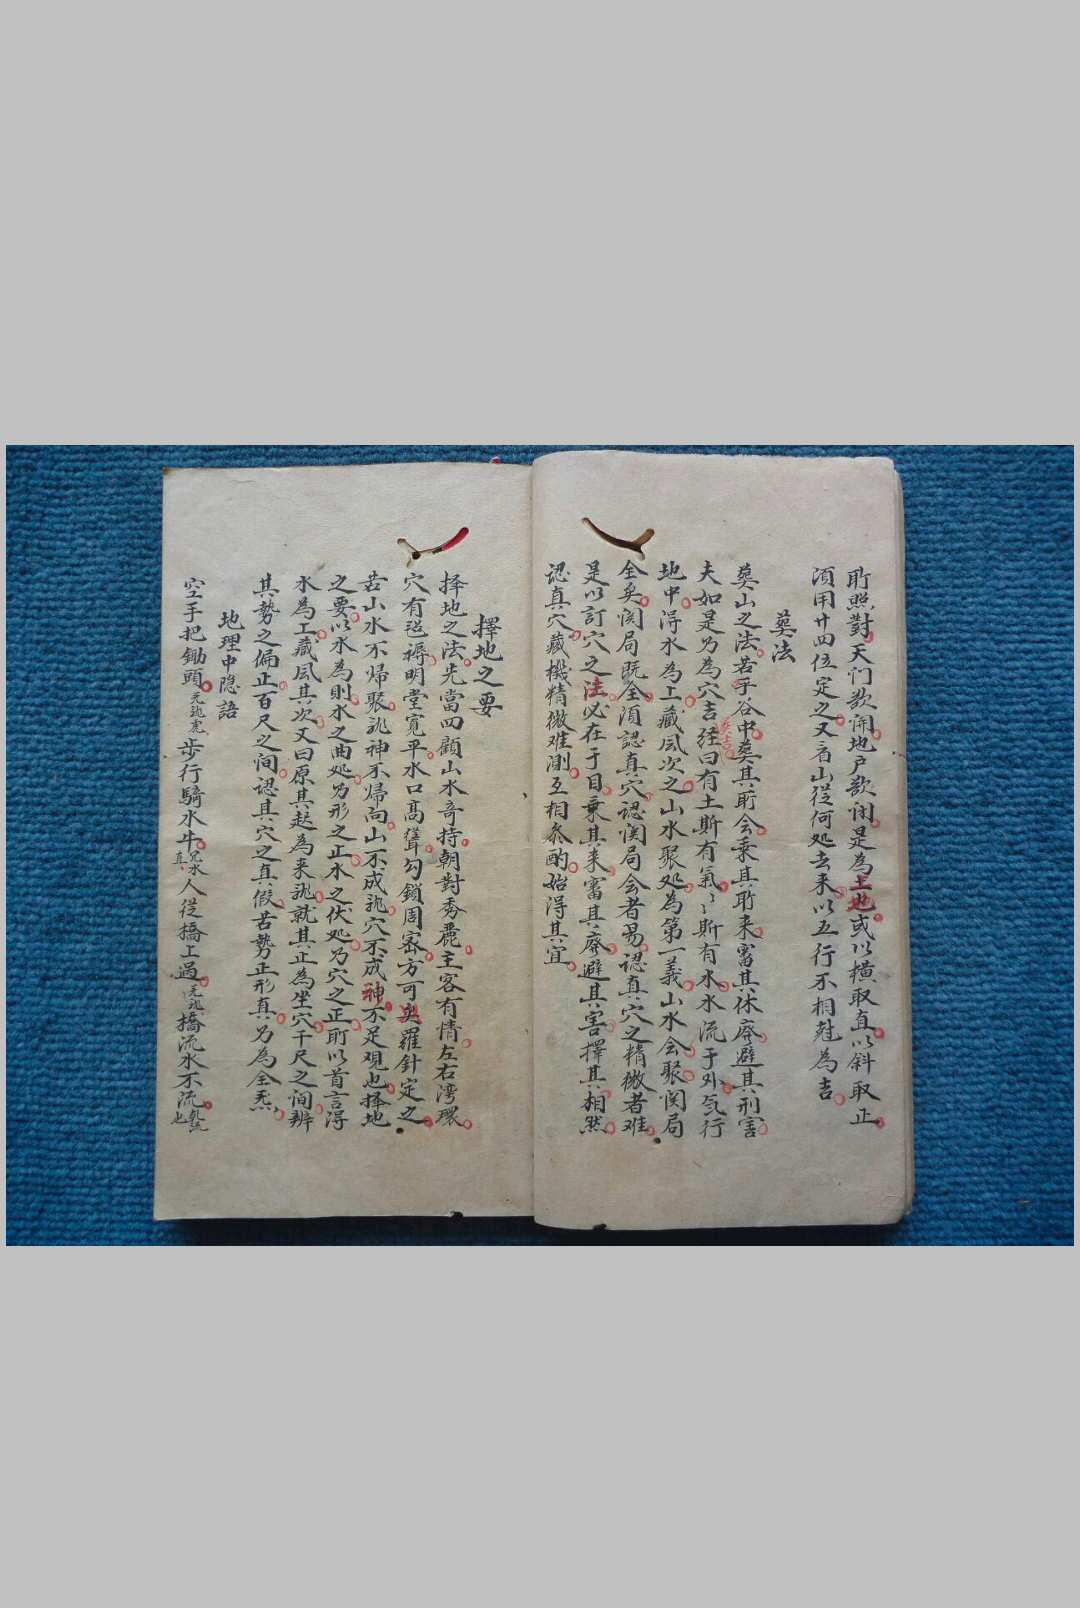 所照對天门欲開地户欲闭是為主也或以横取直以斜取正
須用廿四位定之又看山從何処去来以五行不相尅為吉
葬法
葬山之法若乎谷中葬其所会乘其所来審其休廢避其刑害
夫如是乃為穴吉経曰有土斯有氣〻斯有水水流于外気行
葬吉
地中得水為上藏風次之山水聚処為第一義山水会聚関局
全矣関局既全須認真穴認関局会者易認真穴之精微者难
是以訂穴之法必在于目乘其来審其廢避其害擇其相然
認真穴藏機精微难測互相参酌始得其宜
擇地之要
择地之法先當四顧山水奇持朝對秀麗主客有情左右湾環
穴有毡褥明堂寬平水口高聳勾鎖周密方可奥羅針定之
若山水不帰聚訣神不帰向山不成訣穴不成神不足观也择地
之要以水為則水之曲処乃形之止水之伏処乃穴之正所以首言得
水為上藏風其次又曰原其起為来訣就其止為坐穴千尺之间辨
其勢之偏正百尺之间認其穴之真假若勢正形真乃為全炁
地理中隐語
空手把鋤頭 步行騎水牛 人從橋上過 橋流水不流